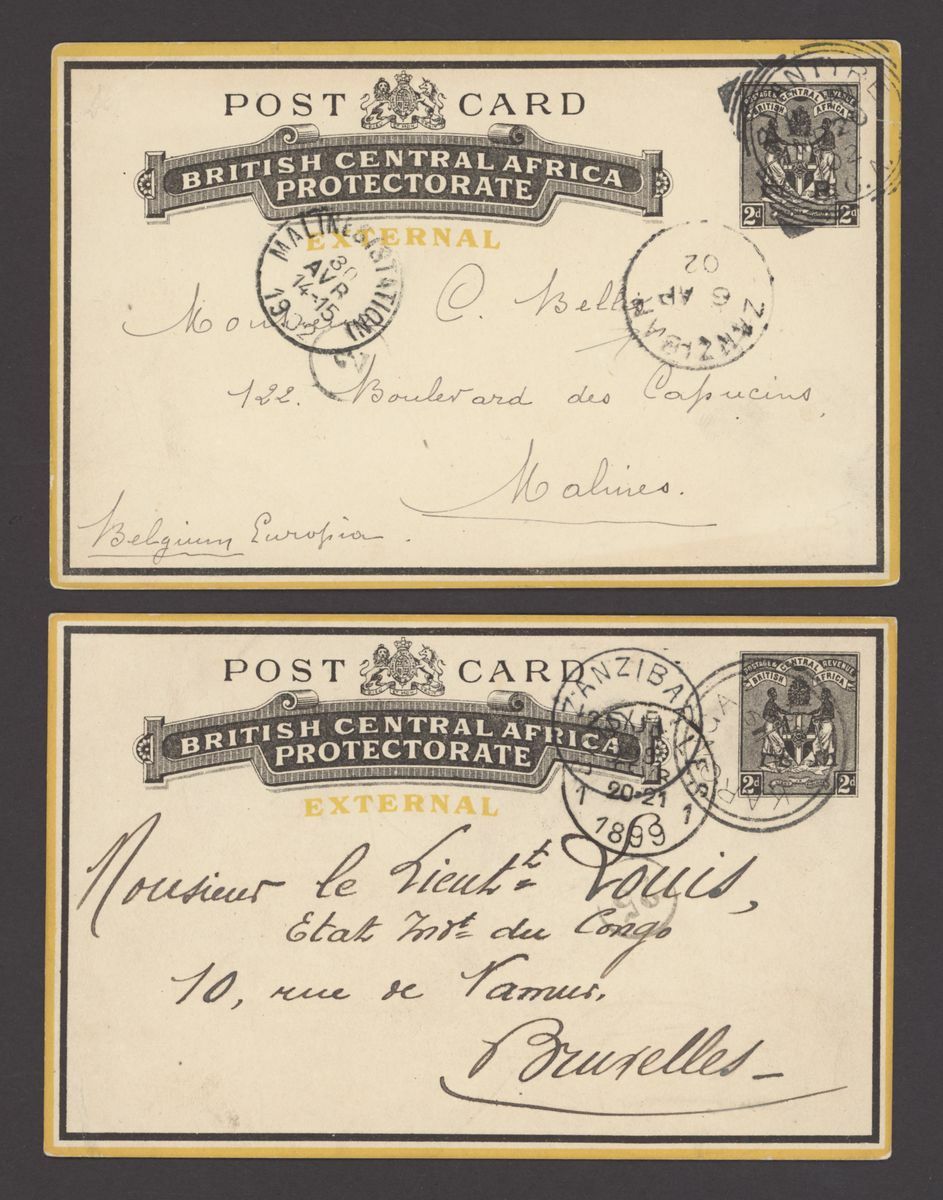 POST CARD
BRITISH CENTRAL AFRICA
PROTECTORATE
EXTERNAL
POSTAGE & CENTRAL REVENUE
BRITISH AFRICA
2d 2d
MALINES (STATION)
30
AVR
14-15
1902
ZANZIBAR
AP
02
Monsieur C.
122. Boulevard des Capucins,
Malines.
Belgium Europia.
POST CARD
BRITISH CENTRAL AFRICA
PROTECTORATE
EXTERNAL
POSTAGE & CENTRAL REVENUE
BRITISH AFRICA
2d 2d
ZANZIBAR
20-21
1 1
1899
Monsieur le Lieutt Louis,
Etat Indt du Congo
10, rue de Namur.
Bruxelles